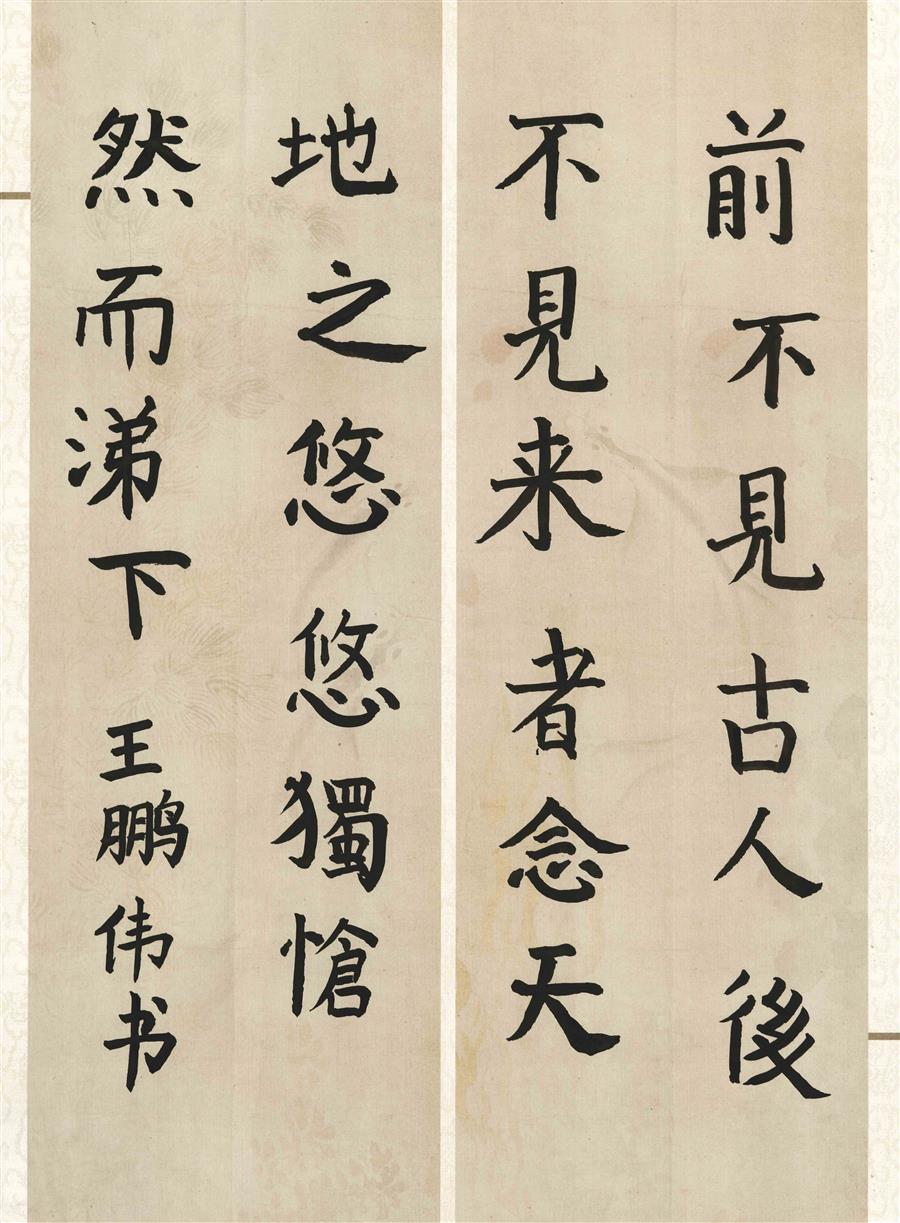 前不見古人後
不見来者念天
地之悠悠獨愴
然而涕下 王鹏伟书